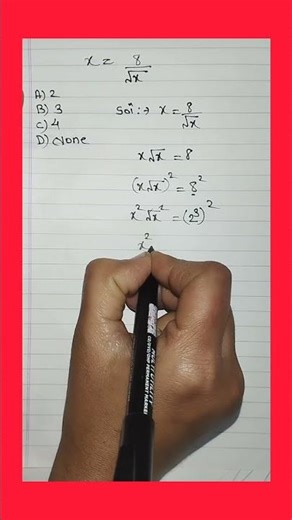 x = 8/√x
A) 2
B) 3
C) 4
D) None
Soln :→ x = 8/√x
x√x = 8
(x√x)² = 8²
x²√x² = (2³)²
x²